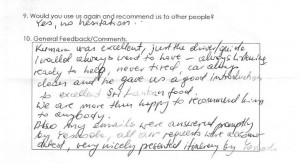 9. Would you use us again and recommend us to other people?
Yes, no hesitation.
10. General Feedback/Comments
was excellent, just the driver/guide
I would always want to have - always listening
ready to help, never tired, car always
clean and he gave us a good introduction
to excellent Sri Lankan food.
We are more than happy to recommend him
to anybody.
Also any emails were answered promptly
by all our requests were
very nicely presented itinerary by